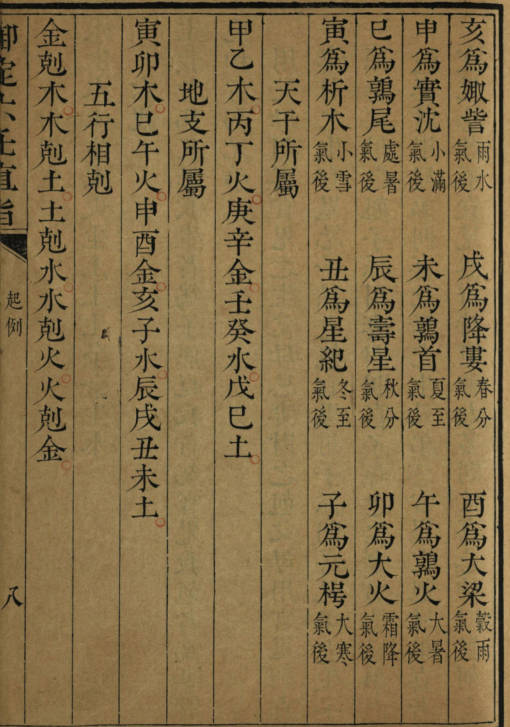 亥爲娵訾 雨水氣後 戌爲降婁 春分氣後 酉爲大梁 穀雨氣後
申爲實沈 小滿氣後 未爲鶉首 夏至氣後 午爲鶉火 大暑氣後
巳爲鶉尾 處暑氣後 辰爲壽星 秋分氣後 卯爲大火 霜降氣後
寅爲析木 小雪氣後 丑爲星紀 冬至氣後 子爲元枵 大寒氣後
天干所屬
甲乙木丙丁火庚辛金壬癸水戊巳土
地支所屬
寅卯木巳午火申酉金亥子水辰戌丑未土
五行相剋
金剋木木剋土土剋水水剋火火剋金
御定六壬直指 起例 八